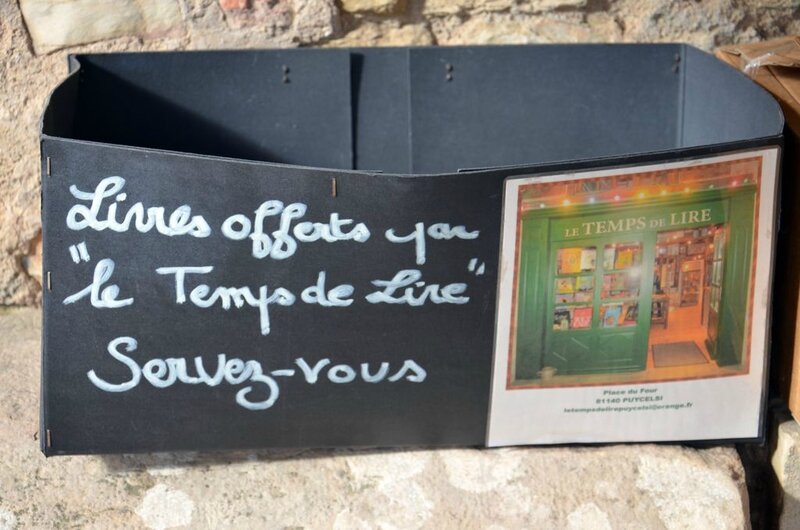 Livres offerts par
"le Temps de Lire"
Servez-vous
LE TEMPS DE LIRE
Place du Four
81140 PUYCELSI
letempsdelirepuycelsi@orange.fr